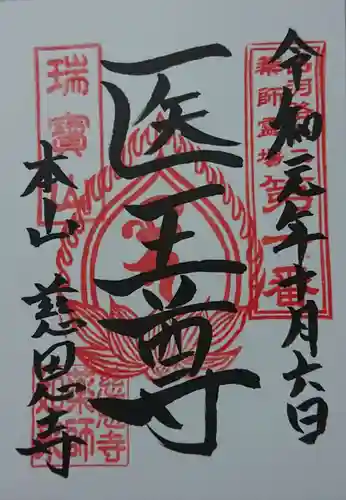 令和元年十月六日
薬師霊場第一番
医王尊
瑞寶山
本山 慈恩寺
慈恩寺
薬師